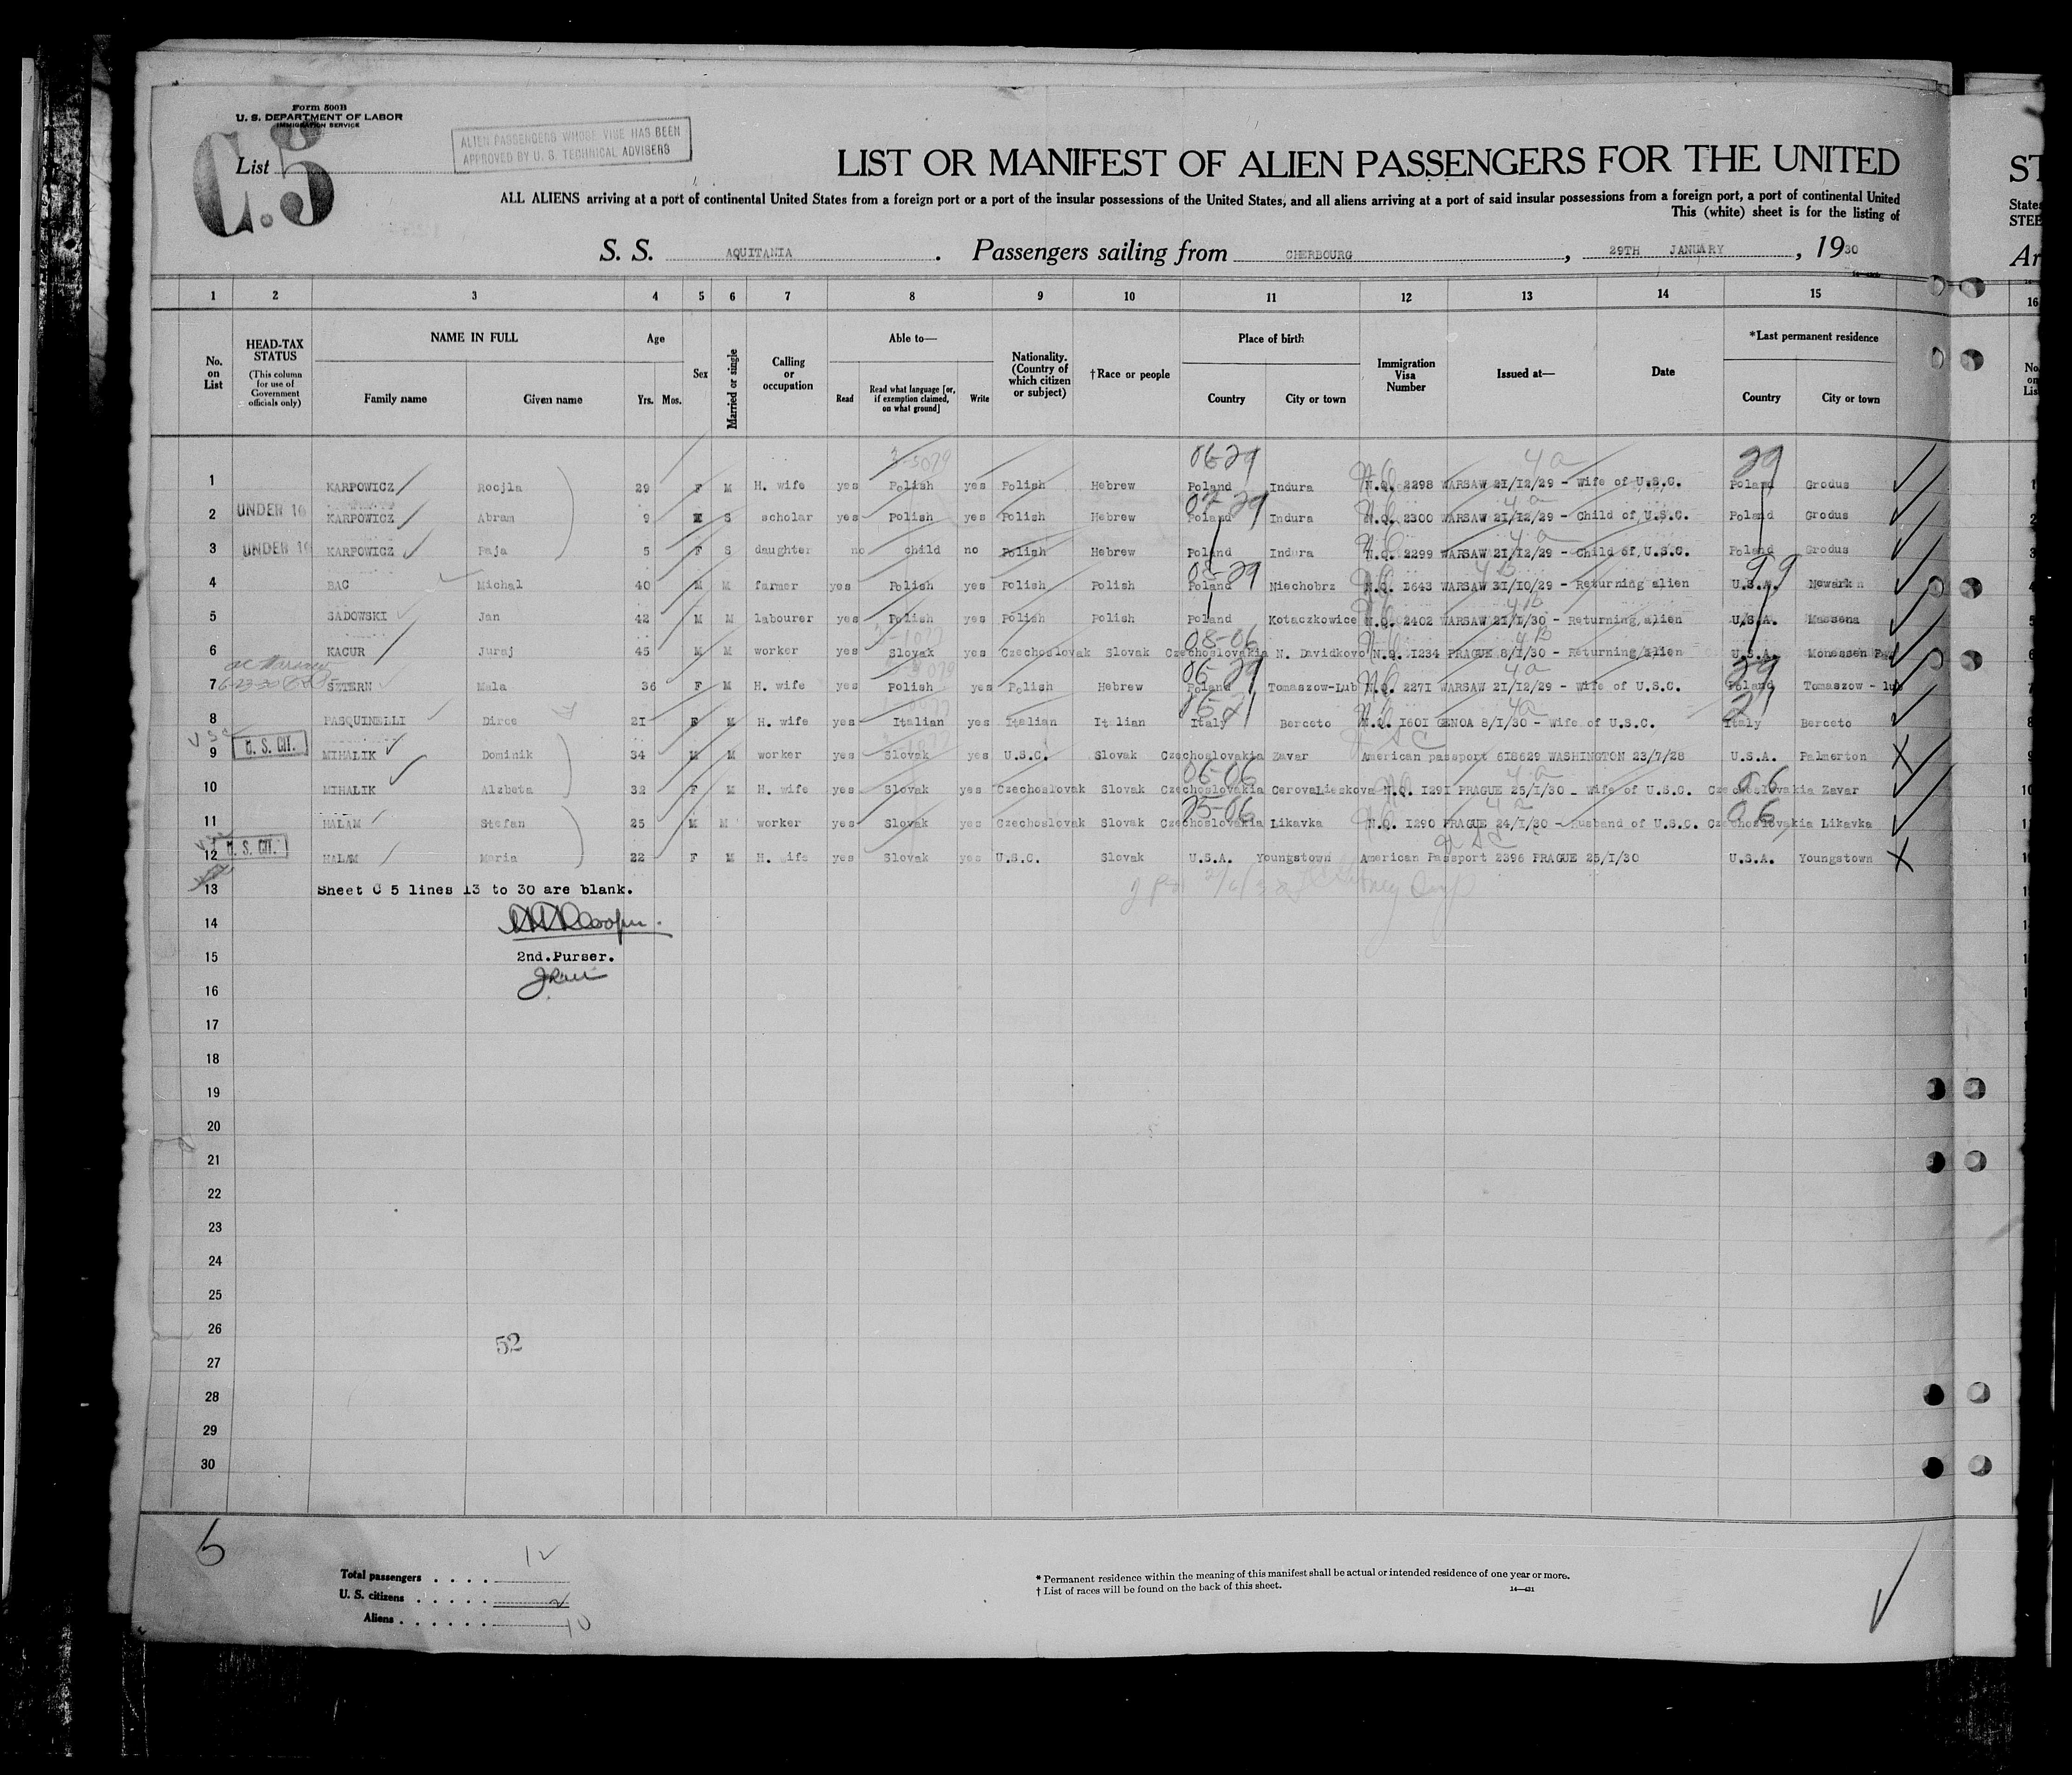 Form 500B
U. S. DEPARTMENT OF LABOR
IMMIGRATION SERVICE
C.5
List
ALIEN PASSENGERS WHOSE VISE HAS BEEN
APPROVED BY U. S. TECHNICAL ADVISERS
LIST OR MANIFEST OF ALIEN PASSENGERS FOR THE UNITED
ST
ALL ALIENS arriving at a port of continental United States from a foreign port or a port of the insular possessions of the United States, and all aliens arriving at a port of said insular possessions from a foreign port, a port of continental United
States
This (white) sheet is for the listing of
STEE
S. S. AQUITANIA . Passengers sailing from CHERBOURG , 29TH JANUARY , 1930
Ar
1 2 3 4 5 6 7 8 9 10 11 12 13 14 15 16
No. on List
HEAD-TAX STATUS (This column for use of Government officials only)
NAME IN FULL Family name Given name
Age Yrs. Mos.
Sex
Married or single
Calling or occupation
Able to— Read Read what language [or, if exemption claimed, on what ground] Write
Nationality. (Country of which citizen or subject)
†Race or people
Place of birth Country City or town
Immigration Visa Number
Issued at—
Date
*Last permanent residence Country City or town
06-29 4a 29
1 KARPOWICZ Rocjla 29 F M H. wife yes Polish yes Polish Hebrew Poland Indura N.Q. 2298 WARSAW 21/12/29 - Wife of U.S.C. Poland Grodus
07-29 4a
2 UNDER 16 KARPOWICZ Abram 9 S scholar yes Polish yes Polish Hebrew Poland Indura N.Q. 2300 WARSAW 21/12/29 - Child of U.S.C. Poland Grodus
4a
3 UNDER 16 KARPOWICZ Paja 5 F S daughter no child no Polish Hebrew Poland Indura N.Q. 2299 WARSAW 21/12/29 - Child of U.S.C. Poland Grodus
4B 99
4 BAC Michal 40 M M farmer yes Polish yes Polish Polish Poland Niechobrz N.Q. 1643 WARSAW 31/10/29 - Returning alien U.S.A. Newark
4B
5 SADOWSKI Jan 42 M M labourer yes Polish yes Polish Polish Poland Kotaczkowice N.Q. 2402 WARSAW 21/1/30 - Returning alien U.S.A. Massena
08-06 4B
6 KACUR Juraj 45 M M worker yes Slovak yes Czechoslovak Slovak Czechoslovakia N. Davidkovo N.Q. 1234 PRAGUE 8/1/30 - Returning alien U.S.A. Monessen Pa
06-29 4a 29
7 6-23-30 SZTERN Mala 36 F M H. wife yes Polish yes Polish Hebrew Poland Tomaszow-Lub N.Q. 2271 WARSAW 21/12/29 - Wife of U.S.C. Poland Tomaszow - lub
4a 21
8 PASQUINELLI Dirce 21 F M H. wife yes Italian yes Italian Italian Italy Berceto N.Q. 1601 GENOA 8/1/30 - Wife of U.S.C. Italy Berceto
9 U. S. CIT. MIHALIK Dominik 34 M M worker yes Slovak yes U.S.C. Slovak Czechoslovakia Zavar American passport 618629 WASHINGTON 23/7/28 U.S.A. Palmerton X
06-06 4a 06
10 MIHALIK Alzbeta 32 F M H. wife yes Slovak yes Czechoslovak Slovak Czechoslovakia CerovaLieskova N.Q. 1291 PRAGUE 25/1/30 - Wife of U.S.C. Czechoslovakia Zavar
25-06 4a 06
11 HALAM Stefan 25 M M worker yes Slovak yes Czechoslovak Slovak Czechoslovakia Likavka N.Q. 1290 PRAGUE 24/1/30 - Husband of U.S.C. Czechoslovakia Likavka
12 U. S. CIT. HALAM Maria 22 F M H. wife yes Slovak yes U.S.C. Slovak U.S.A. Youngstown American Passport 2396 PRAGUE 25/1/30 U.S.A. Youngstown X
13 Sheet C 5 lines 13 to 30 are blank.
14
15 2nd.Purser.
16
17
18
19
20
21
22
23
24
25
26
52
27
28
29
30
5
Total passengers . . . . 12
U. S. citizens . . . . . 2
Aliens . . . . . . 10
* Permanent residence within the meaning of this manifest shall be actual or intended residence of one year or more.
† List of races will be found on the back of this sheet.
14—431